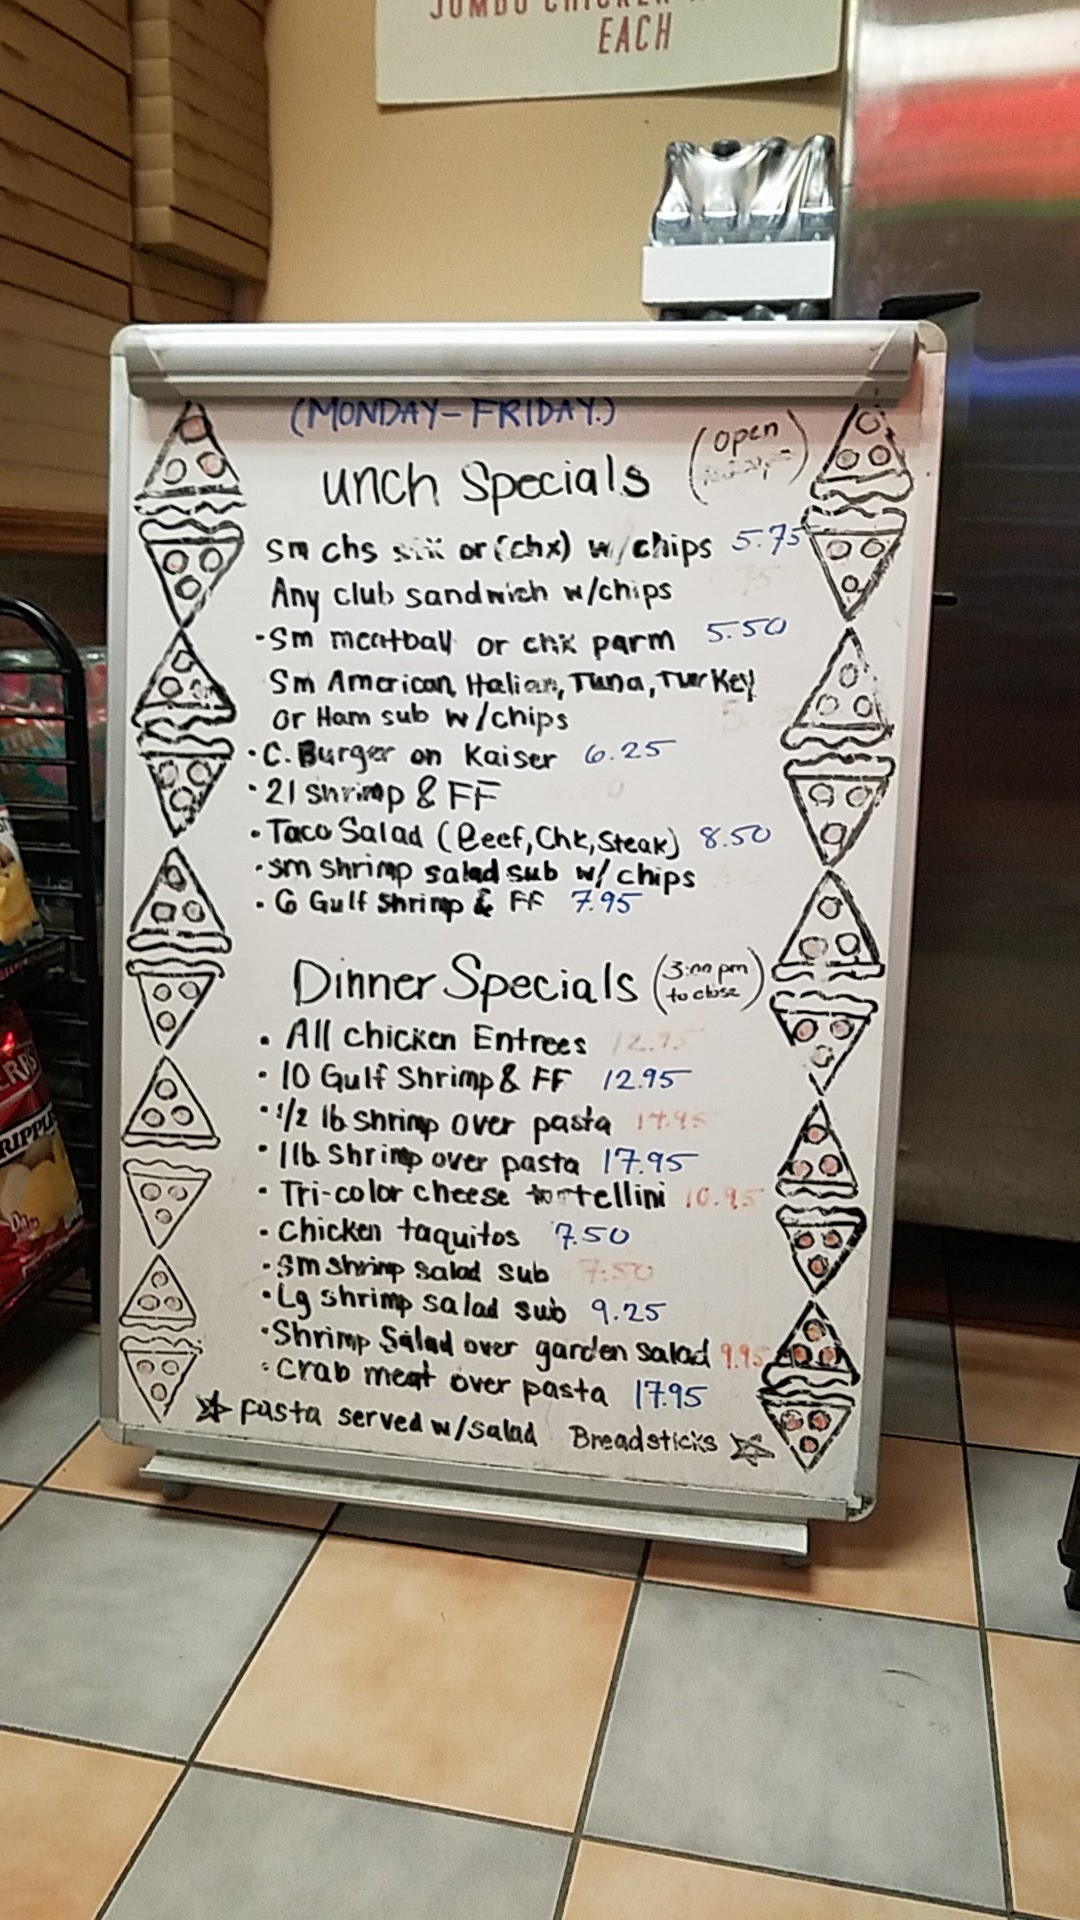 EACH
(MONDAY-FRIDAY.)
unch Specials (open
sm chs or (chx) w/chips 5.75
Any club sandwich w/chips
·Sm meatball or chk parm 5.50
Sm American, Italian, Tuna, Turkey
or Ham sub w/chips
·C. Burger on Kaiser 6.25
·21 shrimp & FF
·Taco Salad (Beef, Chk, Steak) 8.50
·sm shrimp salad sub w/ chips
·6 Gulf Shrimp & FF 7.95
Dinner Specials (3:00 pm
to close)
· All Chicken Entrees 12.95
· 10 Gulf Shrimp & FF 12.95
· 1/2 lb shrimp over pasta
· 1lb Shrimp over pasta 17.95
· Tri-color cheese tortellini 10.95
· Chicken taquitos 7.50
· Sm shrimp salad sub 7.50
· Lg shrimp salad sub 9.25
·Shrimp Salad over garden salad 9.95
· Crab meat over pasta 17.95
Pasta served w/salad Breadsticks